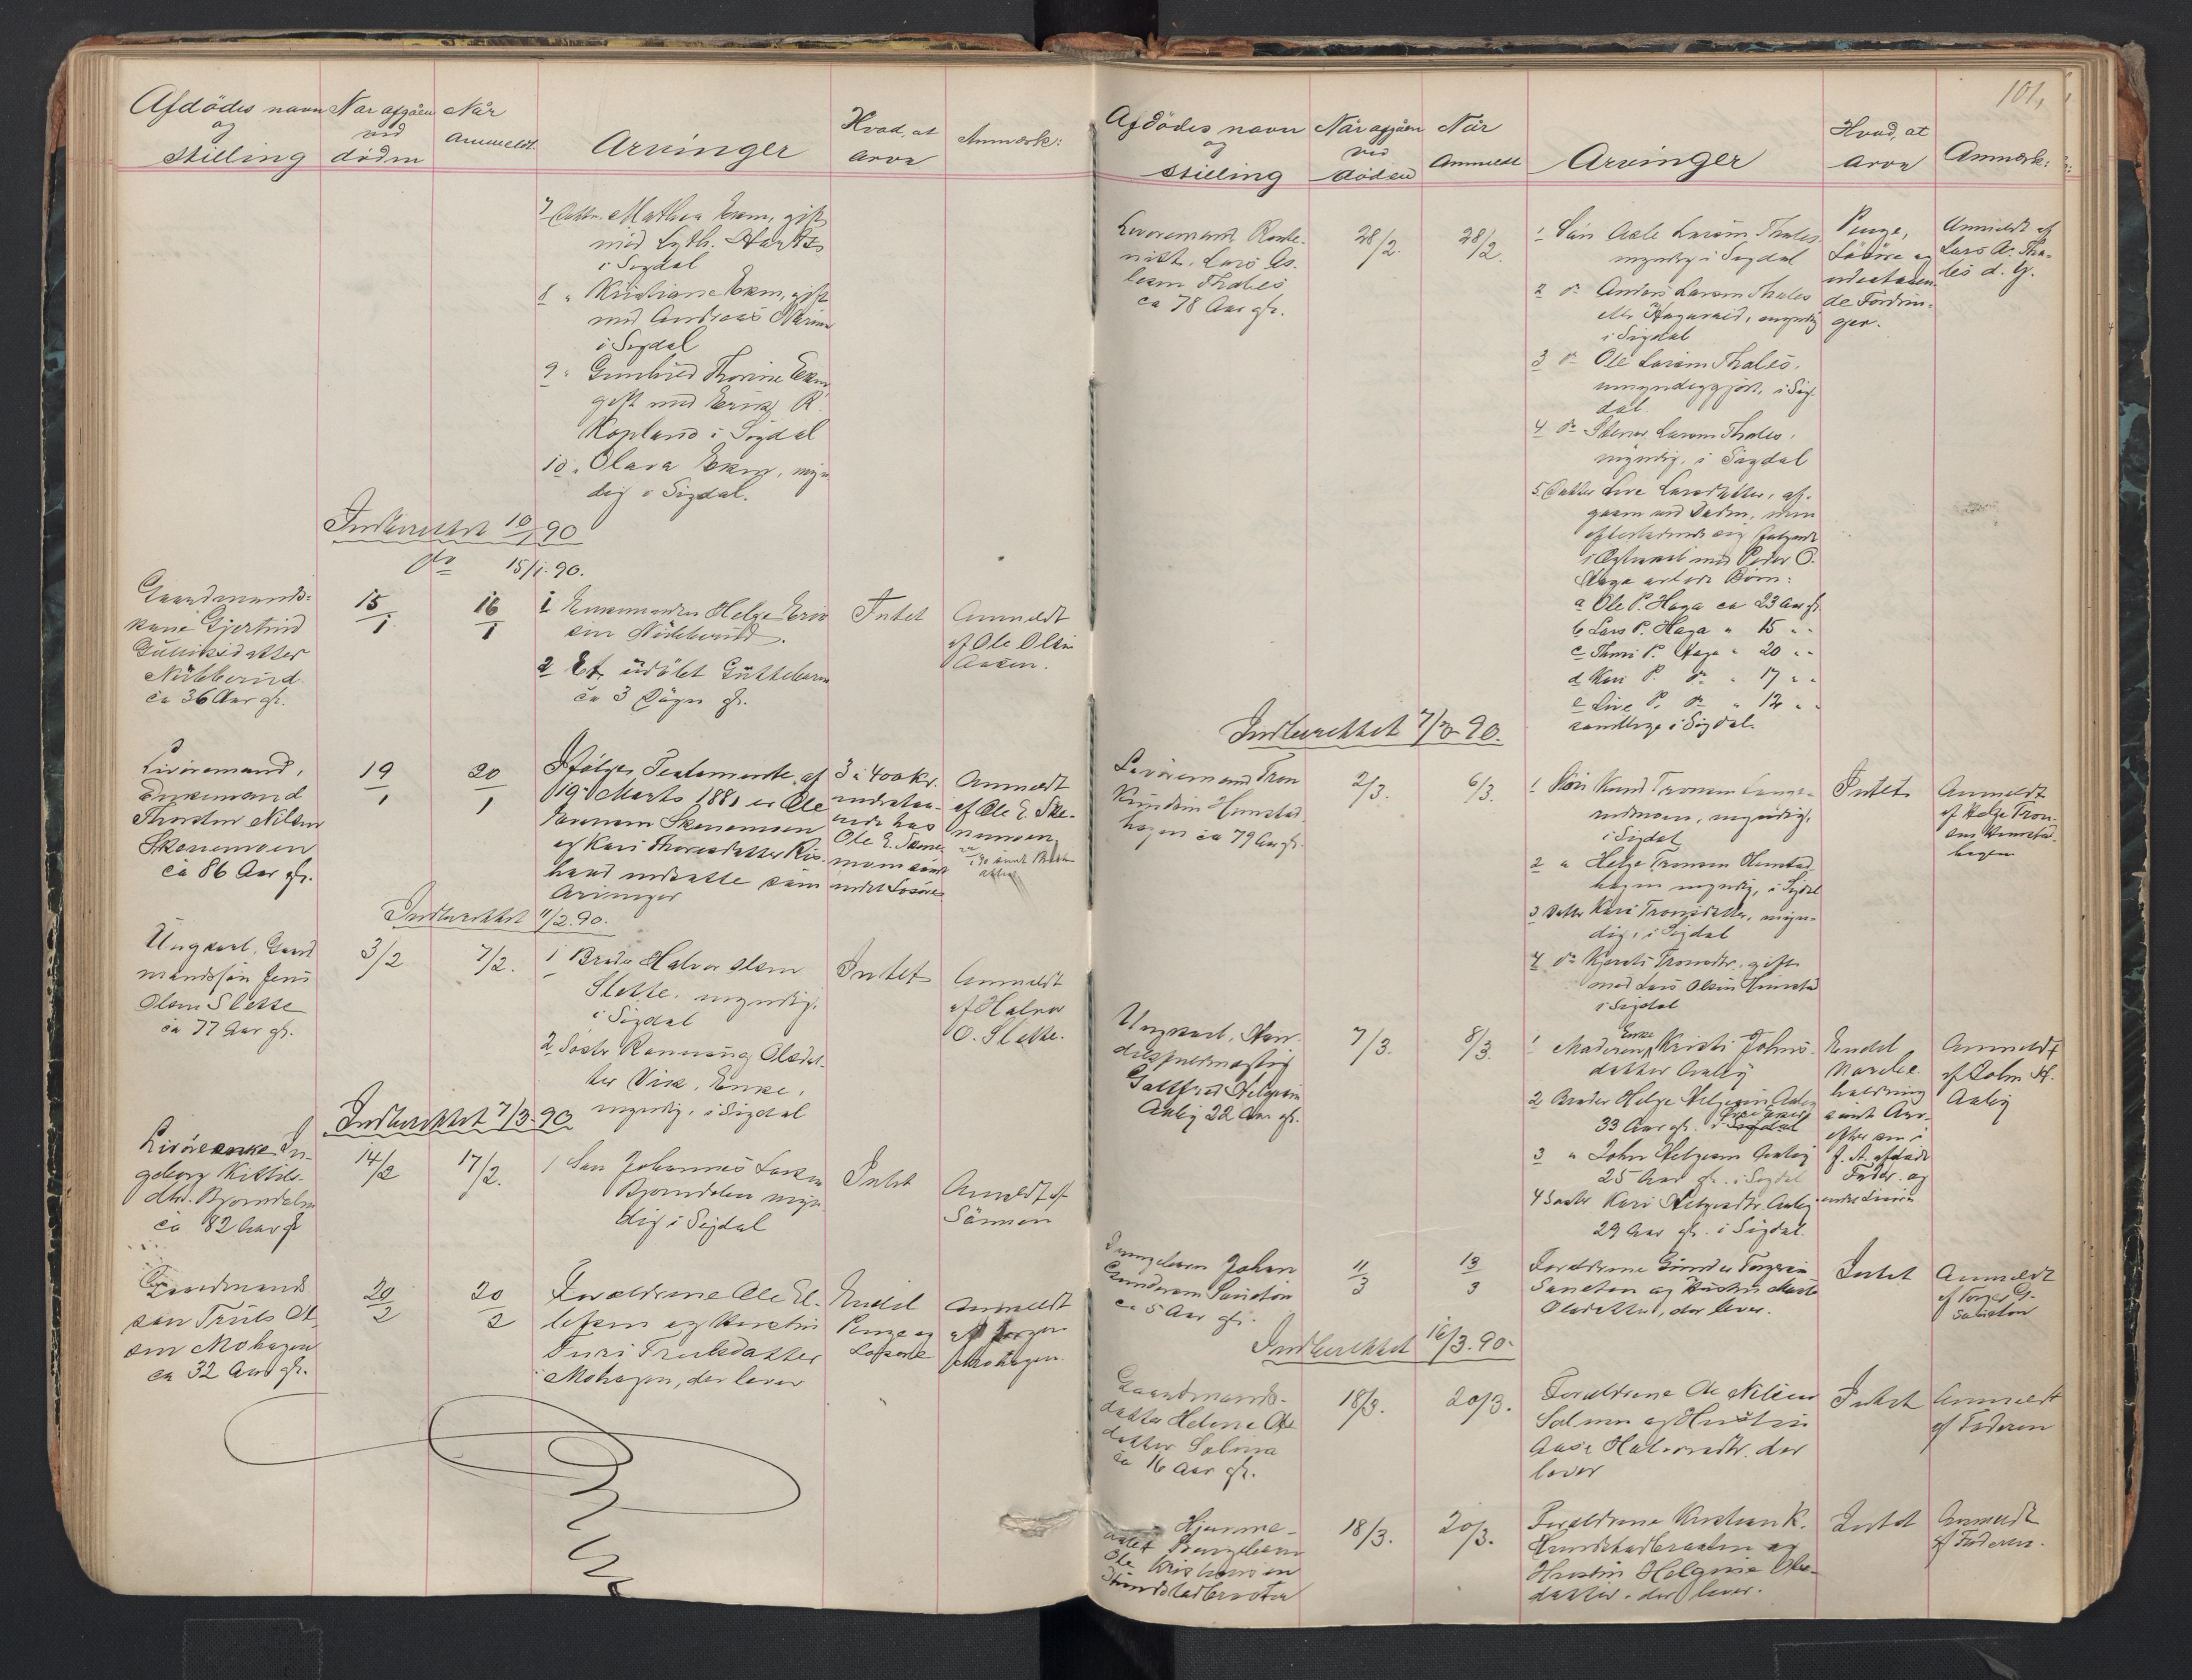 Afdödes navn
og
stilling
Når afgåen
ved
döden
Når
anmeldt
Arvinger
Hvad, at
arve
Anmærk:
7 Datter Mathea Ekern, gift
med
i Sigdal
8 " Kristiane Ekern, gift
med Andreas
i Sigdal
9 " Gunhild Thorine Ekern
gift med Erik R.
Kopland i Sigdal
10 " Olava Ekern, myn
dig i Sigdal.
Indberettet 10/1 90
do 15/1. 90.
Gaardmands-
kone Gjertrud
Gulliksdatter
Nubberud
ca 36 Aar gl.
15/1
16/1
1 Enkemanden Helge Erik
sen Nubberud.
2 Et udöbt Guttebarn
ca 3 Dögn gl.
Intet
Anmeldt
af Ole Olsen
Aasen.
Livöremand,
Enkemand
Thorsten Nilsen
Skonemoen
ca 86 Aar gl.
19/1
20/1
Ifölge Testamente af
19 Marts 1881 er Ole
Evensen Skonemoen
og Kari Thoresdatter
haand indsatte som
Arvinger
3 à 400 kr.
indestaa-
ende hos
Ole E. Skone-
moen samt
endel Lösöre
Anmeldt
af Ole E. Sko-
nemoen
Indberettet 11/2 90.
Ungkarl, Gaard
mandssön Jens
Olsen Slette
ca 77 Aar gl.
3/2
7/2.
1 Broder Halvor Olsen
Slette, myndig,
i Sigdal
2 Söster Rønnaug Olsdat-
ter Vik, Enke,
myndig, i Sigdal
Intet
Anmeldt
af Halvor
O. Slette.
Indberettet 7/3 90
Livöreenke In-
geborg Kittils-
dtr. Bjørndalen
ca 82 Aar gl
14/2
17/2.
1 Sön Johannes Larsen
Bjørndalen myn
dig i Sigdal
Intet
Anmeldt af
Sönnen
Gaardmands
sön Truls Ol
sen Mohagen
ca 32 Aar gl.
20/2
20/2
Forældrene Ole El-
lefsen og Hustru
Guri Trulsdatter
Mohagen, der lever
Endel
Penge og
Lösöre
Anmeldt
af
Mohagen.
101,
Afdödes navn
og
stilling
Når afgåen
ved
döden
Når
anmeldt
Arvinger
Hvad, at
arve
Anmærk:
Livöremand
Lars As-
lesen Tholes
ca 78 Aar gl.
28/2.
28/2.
1 Sön Asle Larsen Tholes
myndig i Sigdal
2 do Anders Larsen Tholes
myndig
i Sigdal
3 do Ole Larsen Tholes,
umyndiggjort, i Sig-
dal
4 do Steinar Larsen Tholes,
myndig, i Sigdal
5. Datter Live Larsdatter, af-
gaaen ved Döden, men
efterladende sig fölgende
i Ægteskab med Peder O.
Haga avlede Börn:
a Ole P. Haga ca 23 Aar gl.
b Lars P. Haga " 15 " "
c P. Haga " 20 " "
d Kari P. do " 17 " "
e Live P. do " 12 " "
samtlige i Sigdal.
Penge,
Lösöre og
udestaaen-
de Fordrin-
ger.
Anmeldt af
Lars A. Tho-
les d. y.
Indberettet 7/3 90.
Livöremand Tron
Knudsen Hunstad
hagen ca 79 Aar gl.
2/3.
6/3.
1 Sön Knud Tronsen
myndig,
i Sigdal
2 " Helge Tronsen Hunstad
hagen myndig, i Sigdal
3 Datter Kari Tronsdatter, myn-
dig, i Sigdal
4 do Kjersti Tronsdtr. gift
med Lars Olsen Hunstad
i Sigdal
Intet
Anmeldt
af Helge Tron-
sen Hunstad-
hagen
Ungkarl, Han-
delsfuldmægtig
Gottfred Helgesen
Aaby 22 Aar gl.
7/3.
8/3.
1 Moderen, Enke Kristi Johns-
datter Aaby
2 Broder Helge Helgesen Aaby
33 Aar gl. i
3 " John Helgesen Aaby
25 Aar gl. i Sigdal
4 Söster Kari Helgesdtr. Aaby
29 Aar gl. i Sigdal.
Endel
samt Arv
efter sin i
afdöde
Fader
Anmeldt
af John H.
Aaby
Pungebarn Johan
Gundersen Sandton
ca 5 Aar gl.
11/3
13/3
Forældrene Gunder Torgersen
og Hustru Marte
Olsdatter, der lever.
Intet
Anmeldt
af Torger G.
Indberettet 16/3. 90.
Gaardmands-
datter Helene Ols
datter Solum
ca 16 Aar gl.
18/3.
20/3.
Forældrene Ole Nilsen
Solum og Hustru
Aase Halvorsdtr. der
lever
Intet
Anmeldt
af Faderen
Hjemme-
Ole Kristiansen
Hundstadbraaten
18/3.
20/3.
Forældrene Kristian K.
Hundstadbraaten og
Hustru Helgine Ols-
datter, der lever.
Intet
Anmeldt
af Faderen.